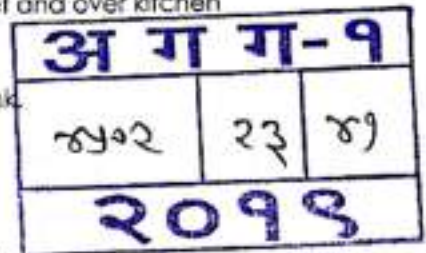 and over kitchen
अ ग ग-१
४५०२ २३ ४१
२०१९